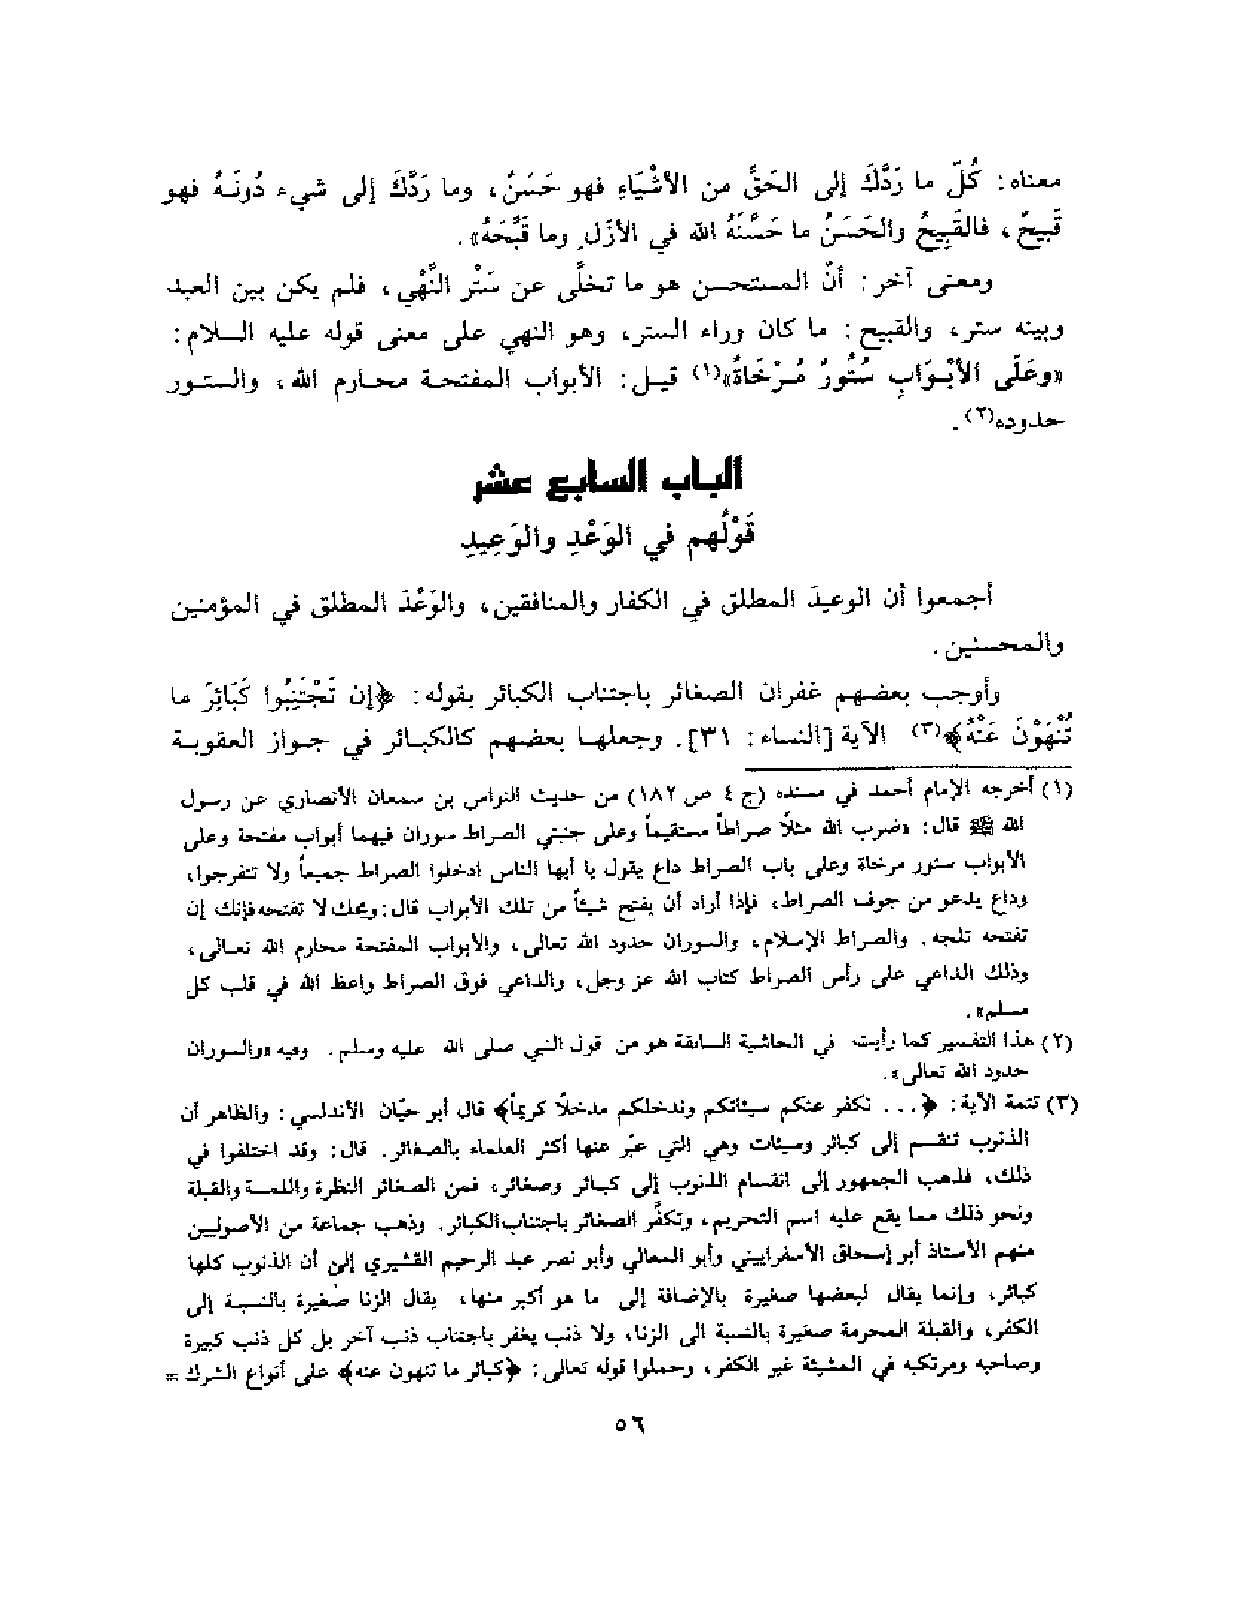 معناه: كُلّ ما رَدَّكَ إلى الحَقِّ من الأشْيَاءِ فهو حَسَنٌ، وما رَدَّكَ إلى شيء دُونَـهُ فهو
قَبِيحٌ، فالقَبِيحُ والحَسَنُ ما حَسَّنَهُ الله في الأزَلِ وما قَبَّحَهُ».
ومعنى آخر: أنّ المستحسن هو ما تخلَّى عن سَتْرِ النَّهْي، فلم يكن بين العبد
وبينه ستر، والقبيح: ما كان وراء الستر، وهو النهي على معنى قوله عليه السلام:
«وعَلَى الأَبْوَابِ سُتُورٌ مُرْخَاةٌ»(١) قيل: الأبواب المفتحة محارم الله، والستور
حدوده(٢).
الباب السابع عشر
قَوْلُهم في الوَعْدِ والوَعِيدِ
أجمعوا أن الوعيدَ المطلق في الكفار والمنافقين، والوَعْدَ المطلق في المؤمنين
والمحسنين.
وأوجب بعضهم غفران الصغائر باجتناب الكبائر بقوله: ﴿إن تَجْتَنِبُوا كَبَائِرَ ما
تُنْهَوْنَ عَنْهُ﴾(٣) الآية [النساء: ٣١]. وجعلها بعضهم كالكبائر في جواز العقوبة
(١) أخرجه الإمام أحمد في مسنده (ج ٤ ص ١٨٢) من حديث النواس بن سمعان الأنصاري عن رسول
الله ﷺ قال: «ضرب الله مثلاً صراطاً مستقيماً وعلى جنبتي الصراط سوران فيهما أبواب مفتحة وعلى
الأبواب ستور مرخاة وعلى باب الصراط داع يقول يا أيها الناس ادخلوا الصراط جميعاً ولا تتفرجوا،
وداع يدعو من جوف الصراط، فإذا أراد أن يفتح شيئاً من تلك الأبواب قال: ويحك لا تفتحه فإنك إن
تفتحه تلجه. والصراط الإسلام، والسوران حدود الله تعالى، والأبواب المفتحة محارم الله تعالى،
وذلك الداعي على رأس الصراط كتاب الله عز وجل، والداعي فوق الصراط واعظ الله في قلب كل
مسلم».
(٢) هذا التفسير كما رأيت في الحاشية السابقة هو من قول النبي صلى الله عليه وسلم. وفيه «والسوران
حدود الله تعالى».
(٣) تتمة الآية: ﴿... نكفر عنكم سيئاتكم وندخلكم مدخلاً كريماً﴾ قال أبو حيّان الأندلسي: والظاهر أن
الذنوب تنقسم إلى كبائر وسيئات وهي التي عبّر عنها أكثر العلماء بالصغائر. قال: وقد اختلفوا في
ذلك، فذهب الجمهور إلى انقسام الذنوب إلى كبائر وصغائر، فمن الصغائر النظرة واللمسة والقبلة
ونحو ذلك مما يقع عليه اسم التحريم، وتكفّر الصغائر باجتناب الكبائر. وذهب جماعة من الأصوليين
منهم الأستاذ أبو إسحاق الأسفراييني وأبو المعالي وأبو نصر عبد الرحيم القشيري إلى أن الذنوب كلها
كبائر، وإنما يقال لبعضها صغيرة بالإضافة إلى ما هو أكبر منها، يقال الزنا صغيرة بالنسبة إلى
الكفر، والقبلة المحرمة صغيرة بالنسبة الى الزنا، ولا ذنب يغفر باجتناب ذنب آخر بل كل ذنب كبيرة
وصاحبه ومرتكبه في المشيئة غير الكفر، وحملوا قوله تعالى: ﴿كبائر ما تنهون عنه﴾ على أنواع الشرك =
٥٦